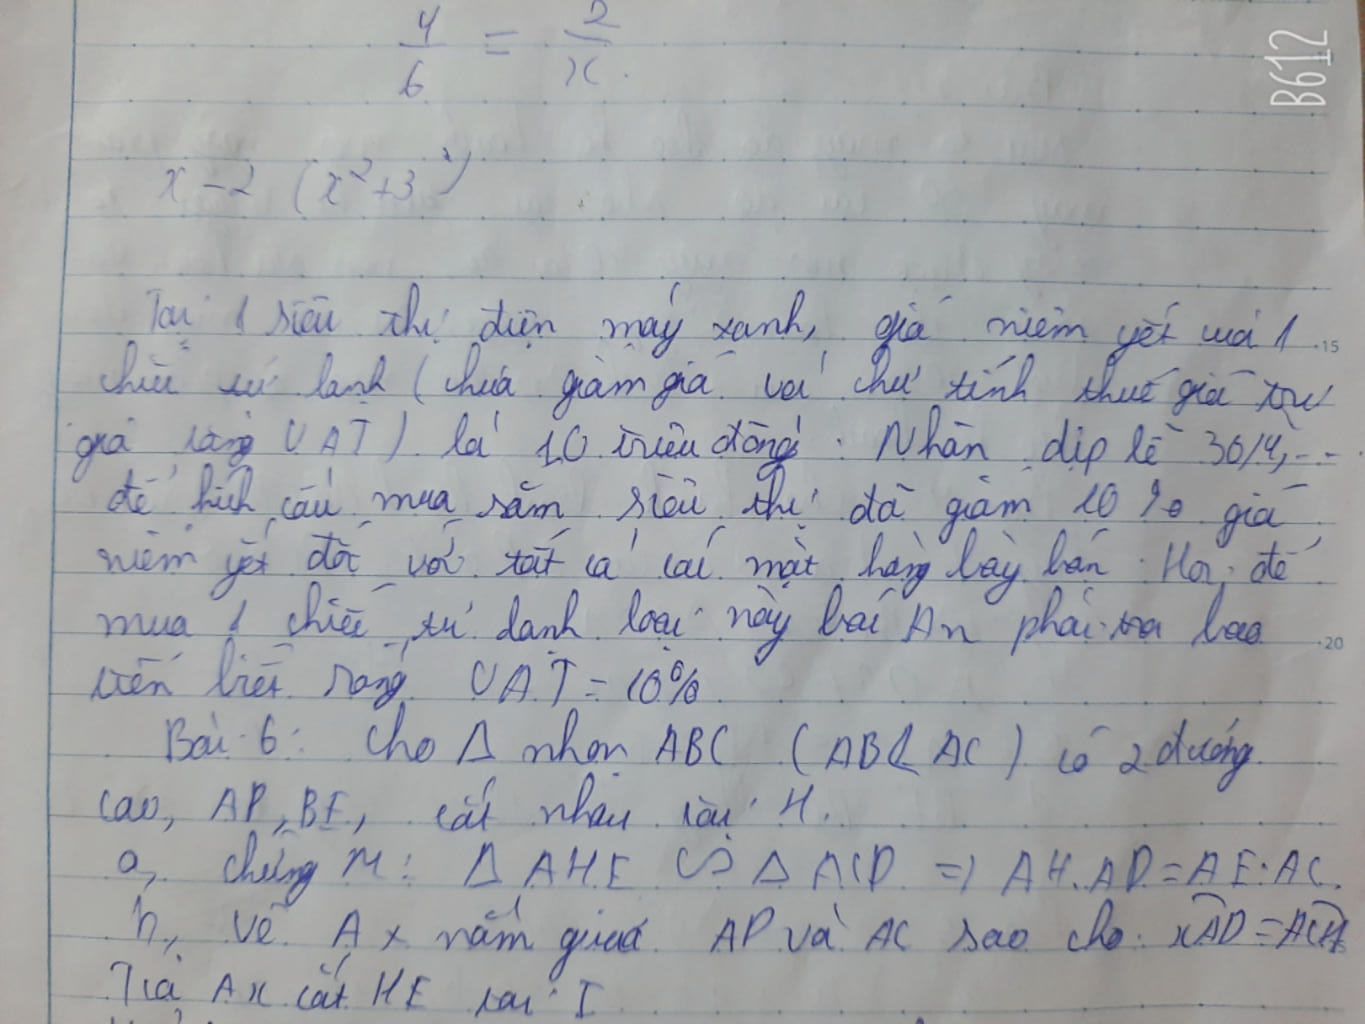 4/6 = 2/x.
x - 2 (x² + 3²)
Tại 1 siêu thị điện máy xanh, giá niêm yết của 1
chiếc tủ lạnh (chưa giảm giá và chư tính thuế giá trị
giá tăng VAT) là 10 triệu đồng. Nhân dịp lễ 30/4, --
để kích cầu mua sắm siêu thị đã giảm 10% giá
niêm yết đối với tất cả các mặt hàng bày bán. Hỏi để
mua 1 chiếc tủ lạnh loại này bác An phải trả bao
tiền biết rằng VAT = 10%
Bài 6: Cho Δ nhọn ABC (AB < AC) có 2 đường
cao, AD, BE, cắt nhau tại H.
a, chứng M: Δ AHE ∽ Δ ACD => AH.AD = AE.AC.
b, vẽ Ax nằm giữa AD và AC sao cho xAD = ACH
Tia Ax cắt HE tại I
B612
15
20